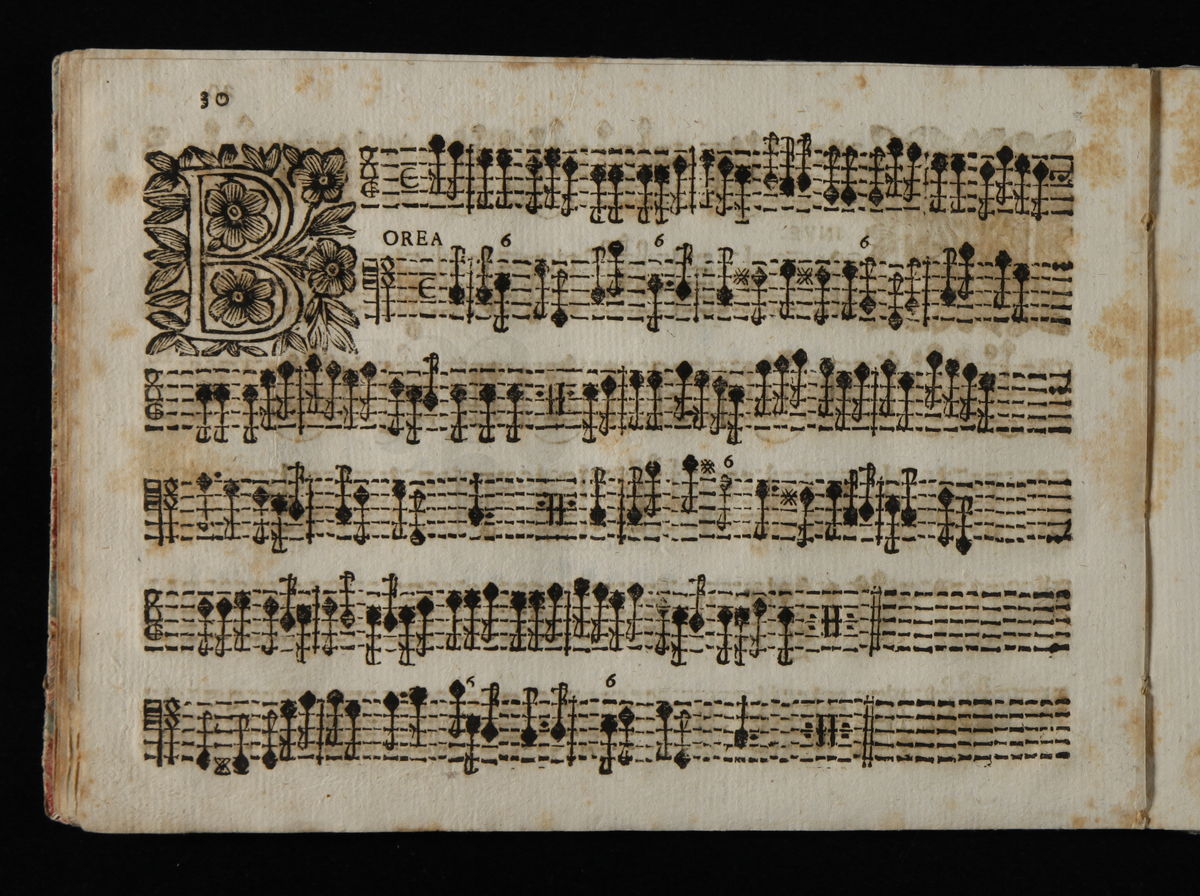 30
B
OREA
6 6 6
6
6 6